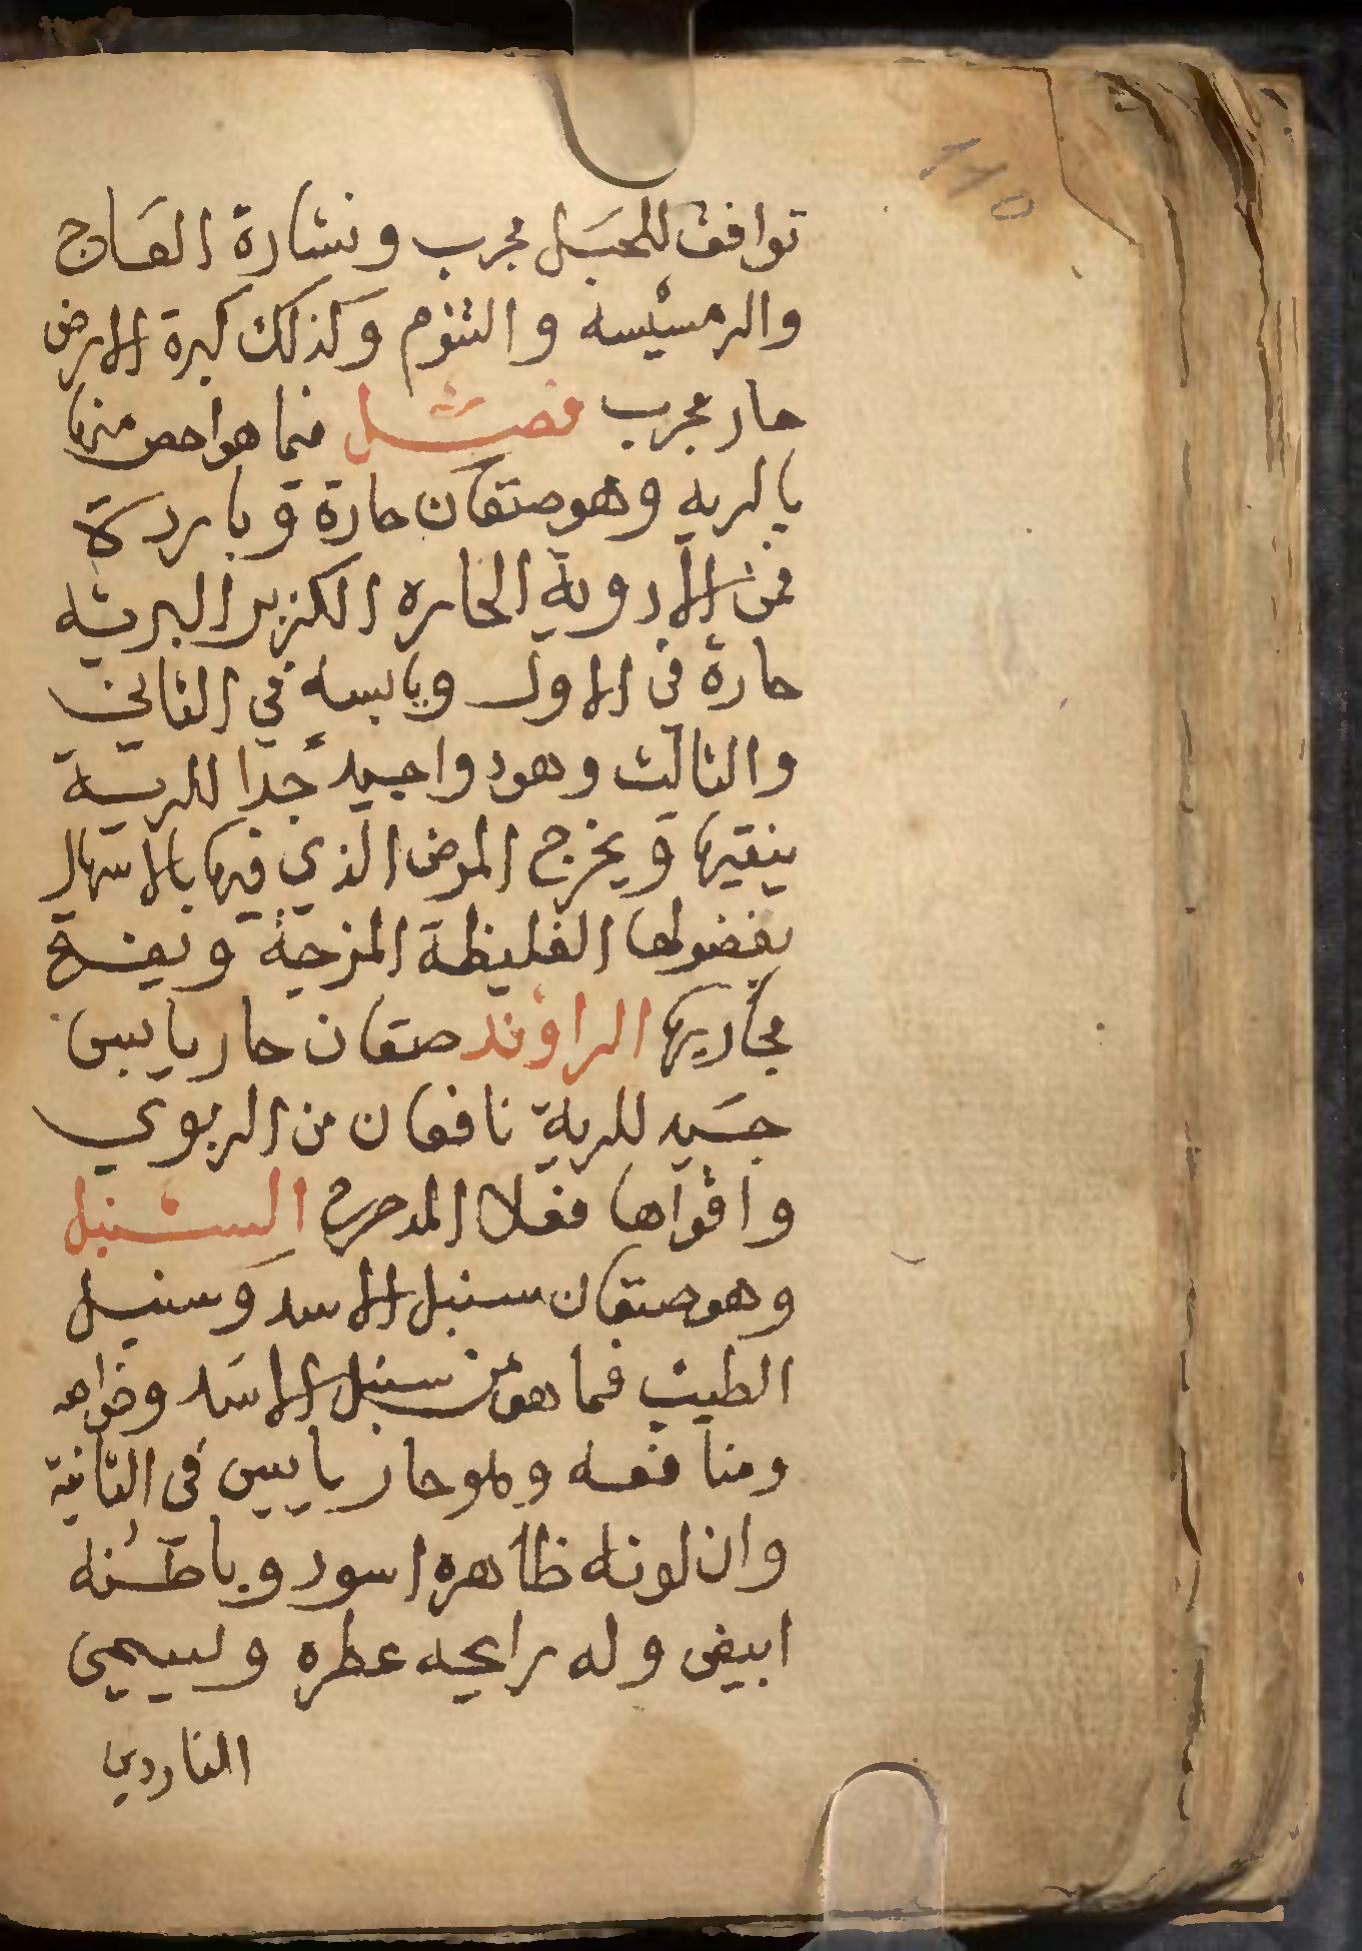 ١١٥
توافق للحبل مجرب ونشارة العاج
والرمسيسه والتنوم وكذلك كبرة الارض
حار مجرب فصل فما هو اخص منها
بالريه وهو صنفان حارة وباردة
فمن الادوية الحاره الكزبر البريه
حارة في الاول ويابسه في الثاني
والثالث وهو دوا جيد جدا للرية
ينقيها ويخرج المرض الذي فيها بالاسهال
بفضولها الغليظة المزجية ويفتح
مجاريها الراوند صنفان حار يابس
جيد للرية نافعان من الربوي
واقواها فعلا المدحرج السنبل
وهو صنفان سنبل الاسد وسنبل
الطيب فما هو من سنبل الاسد وخواصه
ومنافعه وهو حار يابس في الثانية
وان لونه ظاهره اسود وباطنه
ابيض وله رايحه عطره ويسمى
الناردين